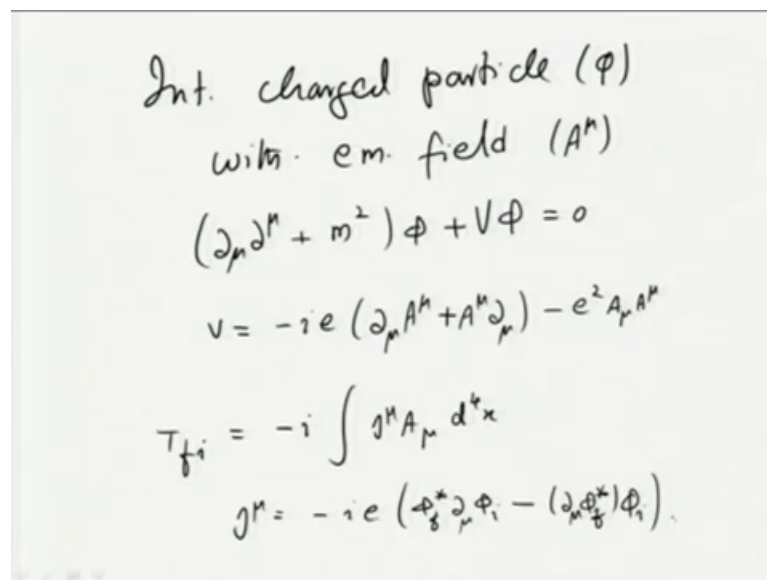 Int. charged particle (φ)
with. em. field (A^μ)
(∂_μ∂^μ + m²) φ + Vφ = 0
V = -ie (∂_μA^μ + A^μ∂_μ) - e² A_μA^μ
T_fi = -i ∫ J^μ A_μ d⁴x
J^μ = -ie (φ_f^* ∂_μ φ_i - (∂_μ φ_f^*) φ_i).